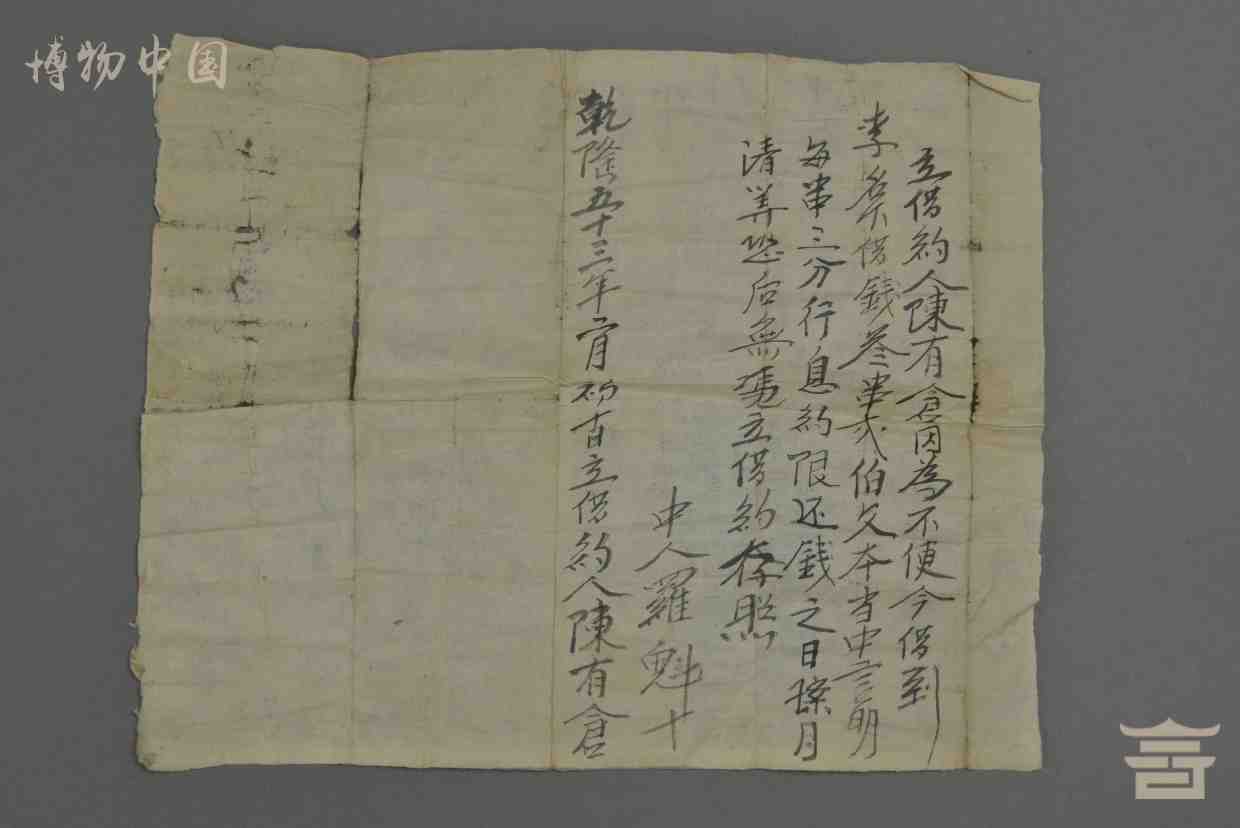 博物中国
立借約人陳有倉因為不便今借到
李名下借錢叁串弍伯文本当中言明
每串三分行息約限还錢之日 月
清算恐后無凴立借約存照
中人羅魁十
乾隆五十三年 月初 日立借約人陳有倉